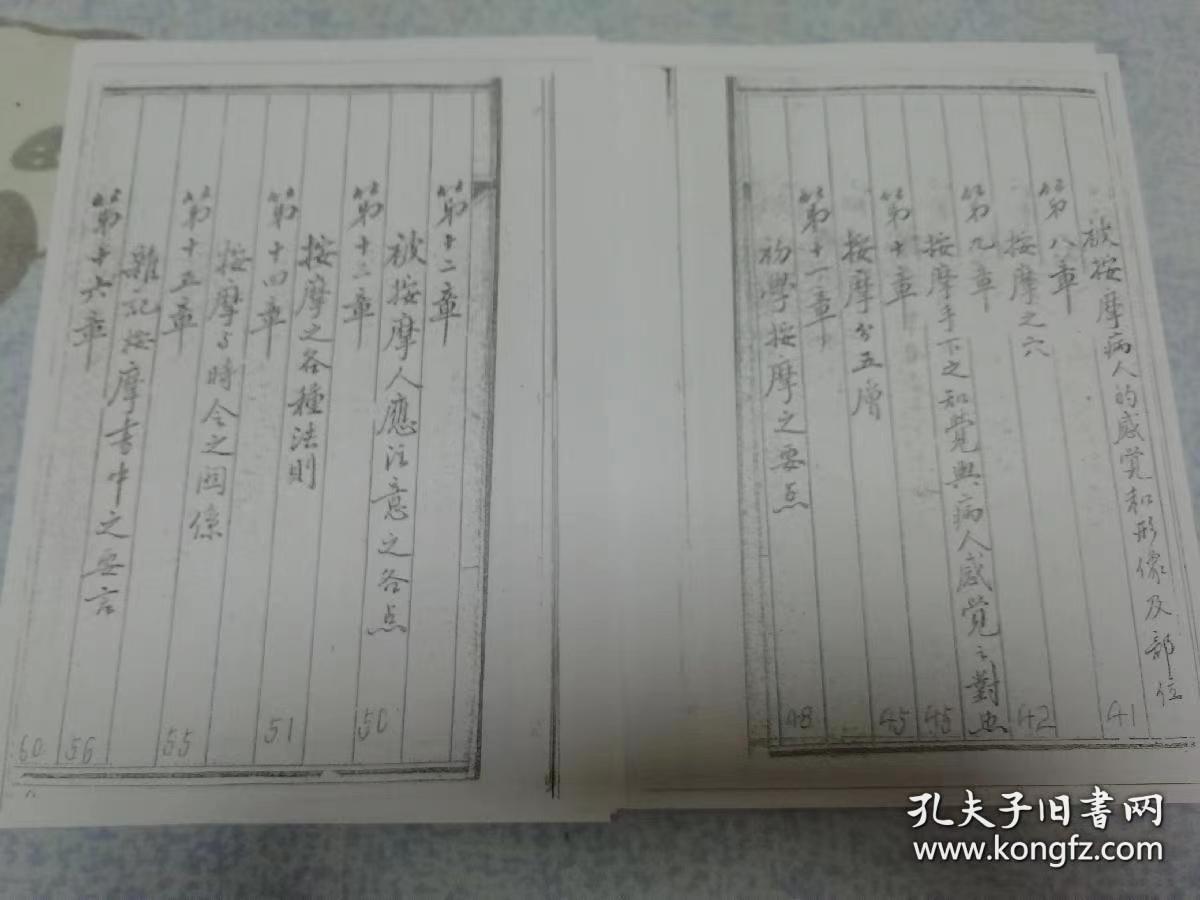 被按摩病人的感覚和形像及部位
41
第八章
按摩之穴
42
第九章
按摩手下之知覺與病人感覚之對照
45
第十章
按摩分五層
45
第十一章
初學按摩之要点
48
第十二章
被按摩人應注意之各点
50
第十三章
按摩之各種法則
51
第十四章
按摩与時令之関係
55
第十五章
雜記按摩書中之要言
56
第十六章
60
孔夫子旧书网
www.kongfz.com